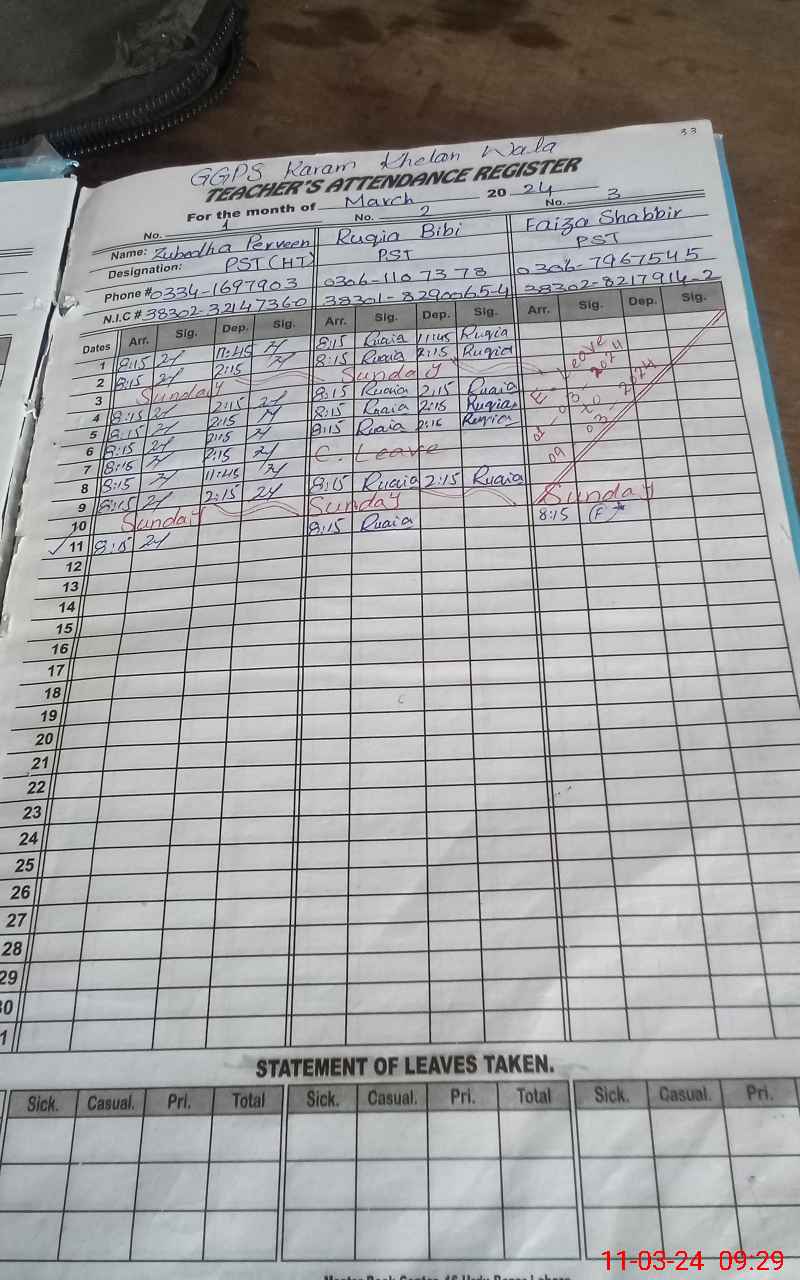 33
GGPS Karam Khelan Wala
TEACHER'S ATTENDANCE REGISTER
For the month of March 2024
No. 1 No. 2 No. 3
Name: Zubedha Perveen Ruqia Bibi Faiza Shabbir
Designation: PST(HT) PST PST
Phone # 0334-1697903 0306-1107378 0306-7967545
N.I.C # 38302-3214736-0 38301-8290065-4 38302-8217914-2
Dates Arr. Sig. Dep. Sig. Arr. Sig. Dep. Sig. Arr. Sig. Dep. Sig.
1 8:15 11:45 8:15 Ruqia 11:45 Ruqia
2 8:15 2:15 8:15 Ruqia 2:15 Ruqia
3 Sunday Sunday
4 8:15 2:15 8:15 Ruqia 2:15 Ruqia
5 8:15 2:15 8:15 Ruqia 2:15 Ruqia
6 8:15 2:15 8:15 Ruqia 2:15 Ruqia
7 8:15 2:15 C. Leave
8 8:15 11:45
9 8:15 2:15 8:15 Ruqia 2:15 Ruqia
E. Leave
01-03-2024
to
09-03-2024
10 Sunday Sunday Sunday
11 8:15 8:15 Ruqia 8:15
12
13
14
15
16
17
18
19
20
21
22
23
24
25
26
27
28
29
30
1
STATEMENT OF LEAVES TAKEN.
Sick. Casual. Pri. Total Sick. Casual. Pri. Total Sick. Casual. Pri.
11-03-24 09:29